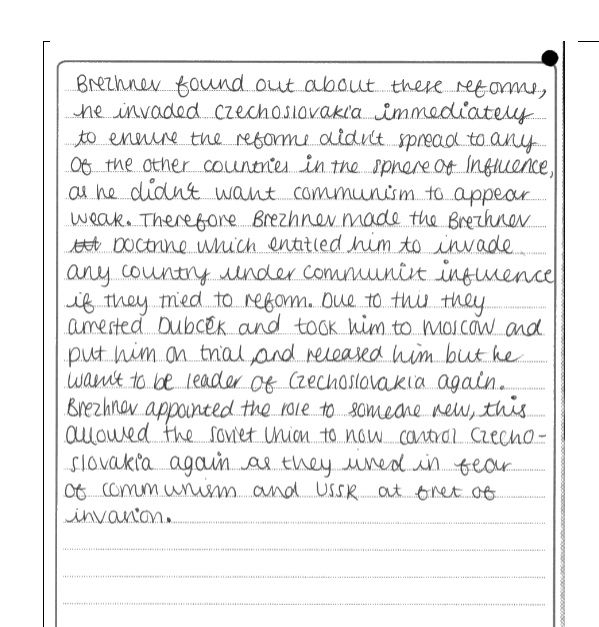 Brezhnev found out about these reforms,
he invaded Czechoslovakia immediately
to ensure the reforms didn't spread to any
of the other countries in the sphere of Influence,
as he didn't want communism to appear
weak. Therefore Brezhnev made the Brezhnev
Doctrine which entitled him to invade
any country under communist influence
if they tried to reform. Due to this they
arrested Dubcek and took him to Moscow and
put him on trial and released him but he
wasn't to be leader of Czechoslovakia again.
Brezhnev appointed the role to someone new, this
allowed the Soviet Union to now control Czecho-
slovakia again as they lived in fear
of communism and USSR at of
invasion.